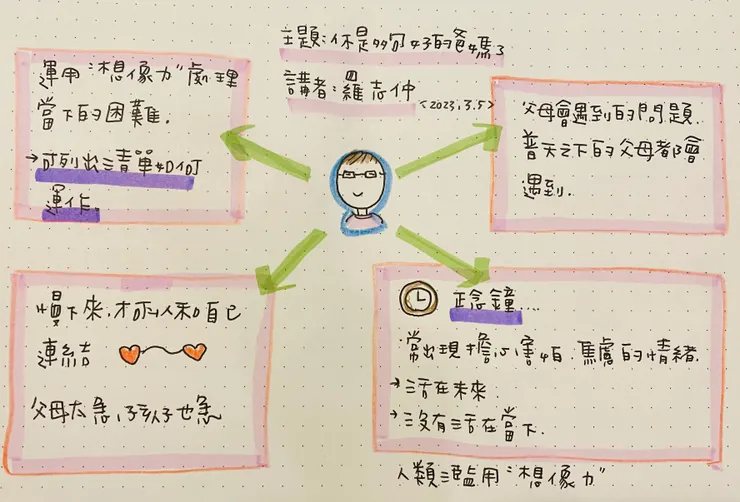 主題:你是夠好的爸媽了
講者:羅志仲
<2023.3.5>
運用"想像力"處理
當下的困難.
→可列出清單如何
運作.
父母會遇到的問題.
普天之下的父母都會
遇到.
慢下來,才可以和自己
連結
父母太急,孩子也急
正念鐘....
常出現擔心害怕.焦慮的情緒.
→活在未來.
→沒有活在當下.
人類濫用"想像力"